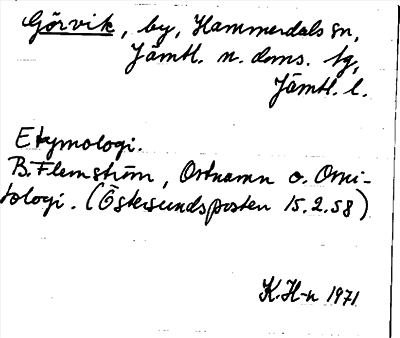 Görvik, by, Hammerdals sn,
Jämtl. n. doms. tg,
Jämtl. l.
Etymologi.
B. Flemström, Ortnamn o. Orni-
tologi. (Östersundsposten 15.2.58)
K. H-n 1971